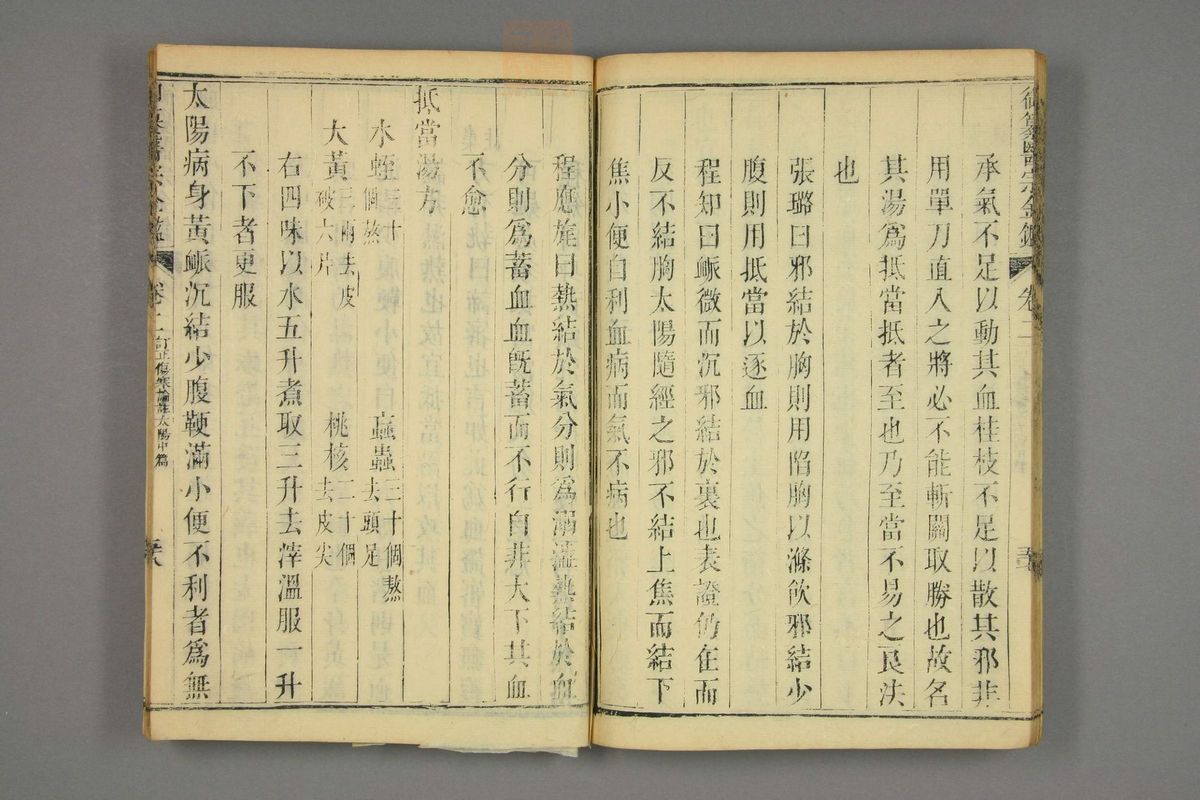 御纂醫宗金鑑 卷二
承氣不足以動其血桂枝不足以散其邪非
用單刀直入之將必不能斬關取勝也故名
其湯爲抵當抵者至也乃至當不易之良法
也
張璐曰邪結於胸則用陷胸以滌飲邪結少
腹則用抵當以逐血
程知曰脈微而沉邪結於裏也表證仍在而
反不結胸太陽隨經之邪不結上焦而結下
焦小便自利血病而氣不病也
程應旄曰熱結於氣分則爲溺澁熱結於血
分則爲蓄血血旣蓄而不行自非大下其血
不愈
抵當湯方
水蛭三十個熬 䖟蟲三十個熬去頭足
大黃三兩去皮破六片 桃核二十個去皮尖
右四味以水五升煮取三升去滓溫服一升
不下者更服
太陽病身黃脈沉結少腹鞕滿小便不利者爲無
御纂醫宗金鑑 卷二 訂正傷寒論註太陽中篇